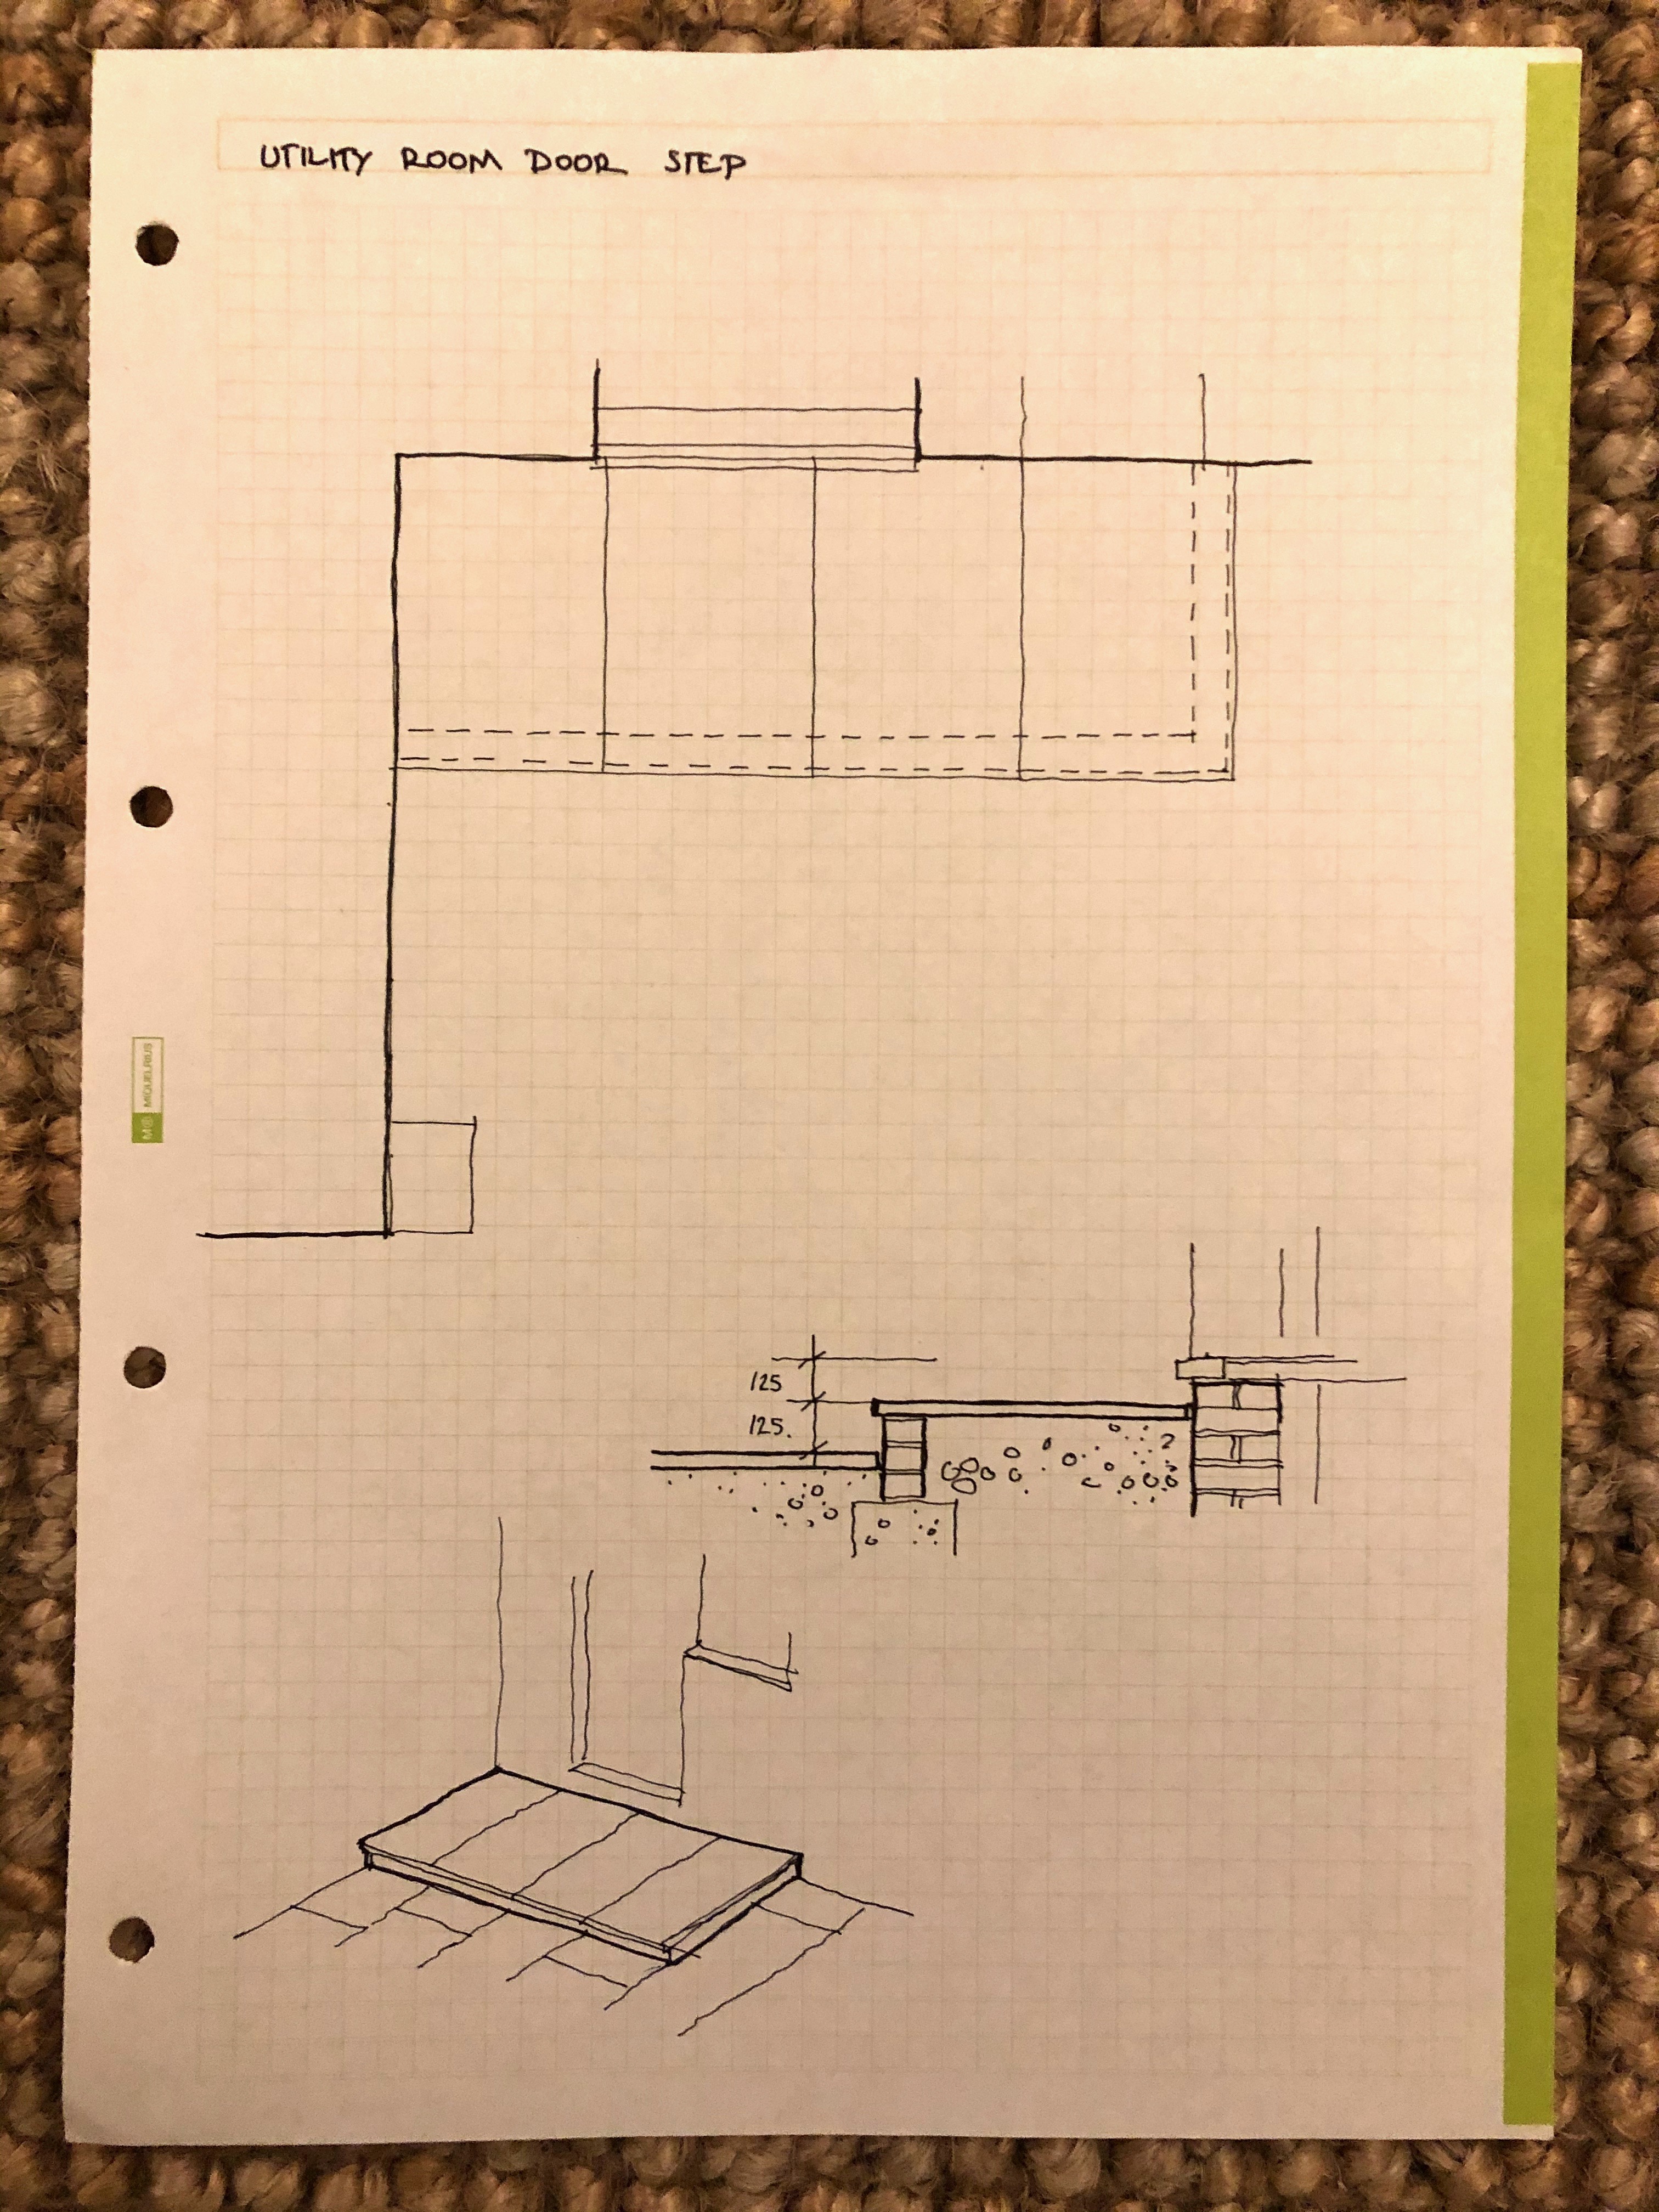 UTILITY ROOM DOOR STEP
MIQUELRIUS
125
125.